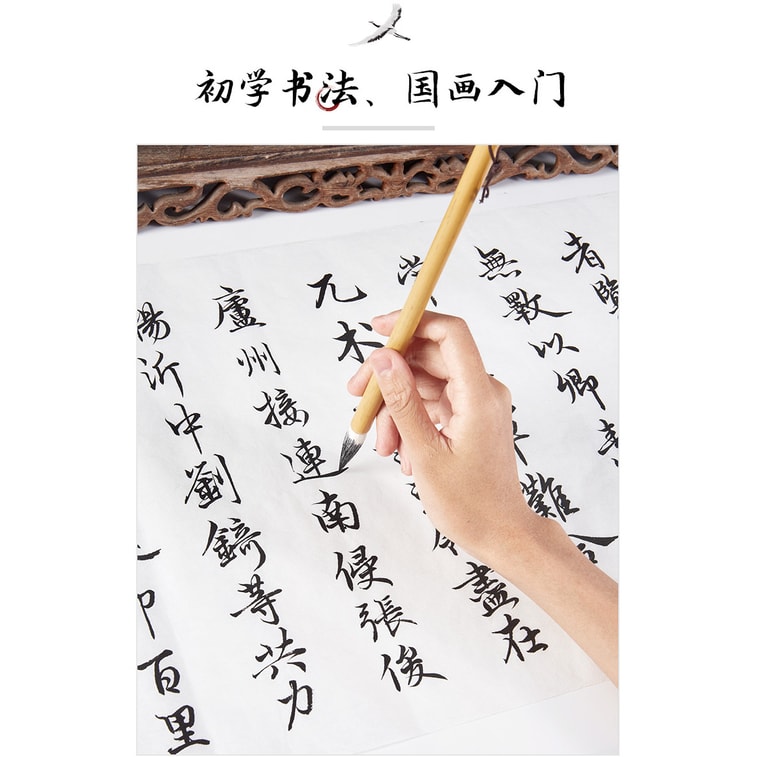 初学书法、国画入门
者覽
無數以卿
難
兀术
盡在
廬州接連南侵張俊
沂中劉錡等共力
百里